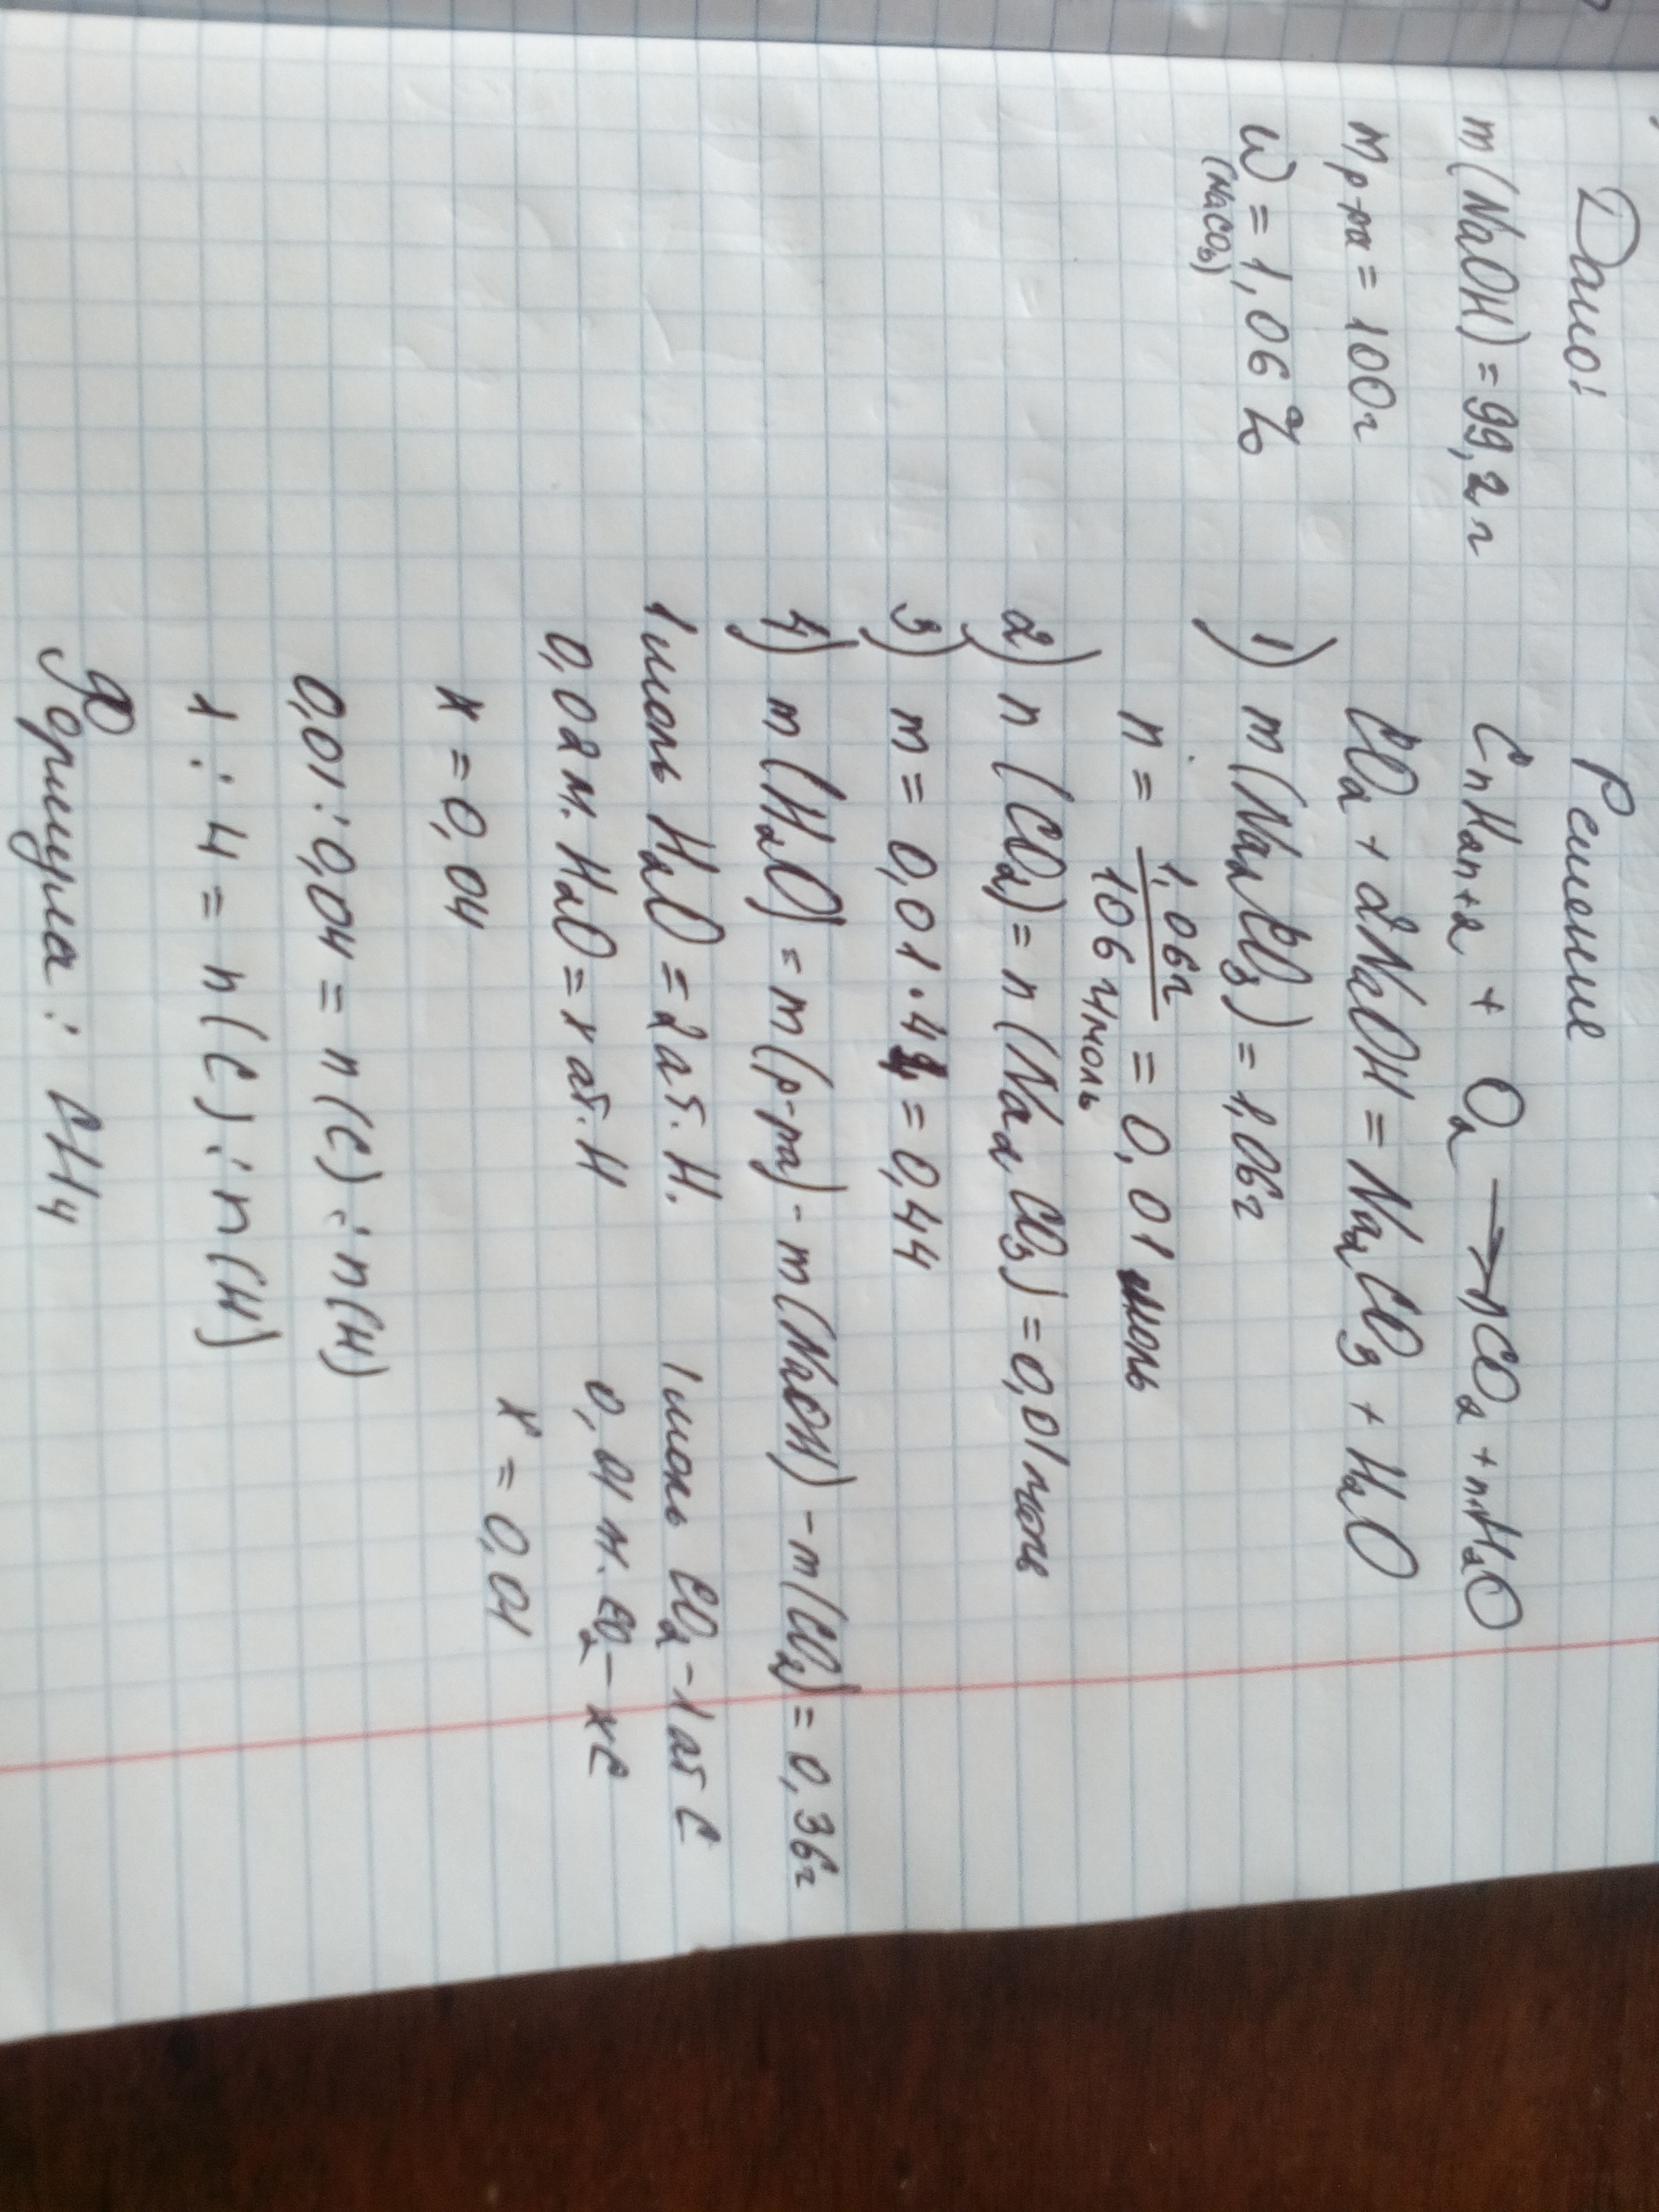 Дано:
m(NaOH) = 99,2 г
m р-ра = 100 г
W = 1,06 %
(NaCO₃)
Решение
CnH₂n+₂ + O₂ → nCO₂ + nH₂O
CO₂ + 2NaOH = Na₂CO₃ + H₂O
1) m(Na₂CO₃) = 1,06 г
n = 1,06 г / 106 г/моль = 0,01 моль
2) n(CO₂) = n(Na₂CO₃) = 0,01 моль
3) m = 0,01 · 44 = 0,44
4) m(H₂O) = m(р-ра) - m(NaOH) - m(CO₂) = 0,36 г
1 моль H₂O = 2 ат. H. 1 моль CO₂ - 1 ат C
0,02 м. H₂O = x ат. H 0,01 м. CO₂ - xC
x = 0,04 x = 0,01
0,01 : 0,04 = n(C) : n(H)
1 : 4 = n(C) : n(H)
Формула: CH₄